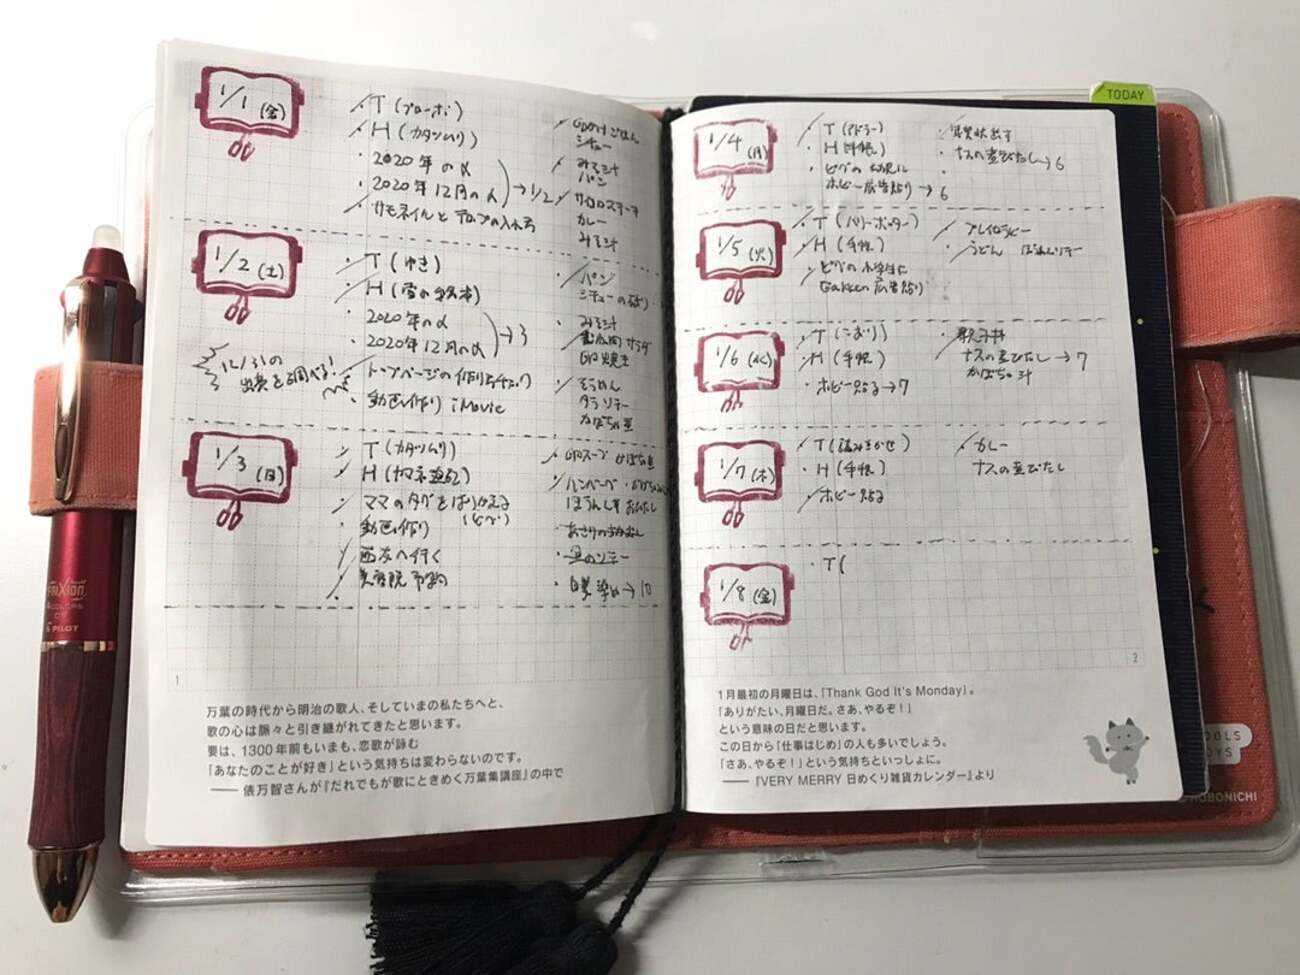 1/1 (金)
T (ブローボ)
H (カタツムリ)
2020年の〆
2020年12月の〆 → 1/2
サモネイルと テロップの入れ方
ごはん
シチュー
みそ汁
パン
サイコロステーキ
カレー
みそ汁
1/2 (土)
T (ゆき)
H (雪の絵本)
2020年の〆
2020年12月の〆 → 3
12/31の
出費を調べる!
トップページの作り方チェック
動画作り iMovie
パン
シチューの残り
みそ汁
サラダ
卵焼き
そうめん
タラ ソテー
かぼちゃ煮
1/3 (日)
T (カタツムリ)
H (ヤマネ遊記)
ママのタグをはりかえる
動画作り
西友へ行く
美容院予約
卵スープ かぼちゃ煮
ハンバーグ
ほうれん草 おひたし
あさりの
ソテー
白菜 → 10
1
万葉の時代から明治の歌人、そしていまの私たちへと、
歌の心は脈々と引き継がれてきたと思います。
要は、1300年前もいまも、恋歌が詠む
「あなたのことが好き」という気持ちは変わらないのです。
── 俵万智さんが『だれでもが歌にときめく万葉集講座』の中で
TODAY
1/4 (月)
T (アドラー)
H (手帳)
ピグの
ホビー広告貼り → 6
年賀状出す
ナスの煮びたし → 6
1/5 (火)
T (ハリーポッター)
H (手帳)
ピグの小学生に
Gakken広告貼り
プレイセラピー
うどん ほうれんソテー
1/6 (水)
T (こおり)
H (手帳)
ホビー貼る → 7
親子丼
ナスの煮びたし → 7
かぼちゃ汁
1/7 (木)
T (読みきかせ)
H (手帳)
ホビー貼る
カレー
ナスの煮びたし
1/8 (金)
T (
2
1月最初の月曜日は、「Thank God It's Monday」。
「ありがたい、月曜日だ。さあ、やるぞ!」
という意味の日だと思います。
この日から「仕事はじめ」の人も多いでしょう。
「さあ、やるぞ!」という気持ちといっしょに。
── 『VERY MERRY 日めくり雑貨カレンダー』より
HOBONICHI
PILOT